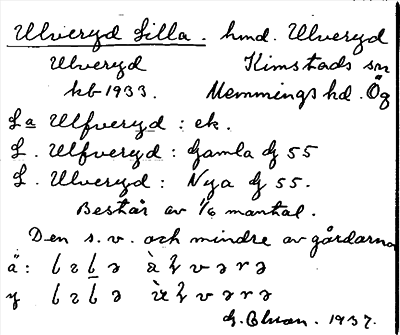 Ulveryd Lilla. hmd. Ulveryd
Ulveryd Kimstads sn
kb 1933. Memmings hd. Ög
La Ulfveryd: ek.
L. Ulfveryd: Gamla Jb 55
L. Ulveryd: Nya Jb 55.
Består av 1/6 mantal.
Den s.v. och mindre av gårdarna
ä:
y
1937.